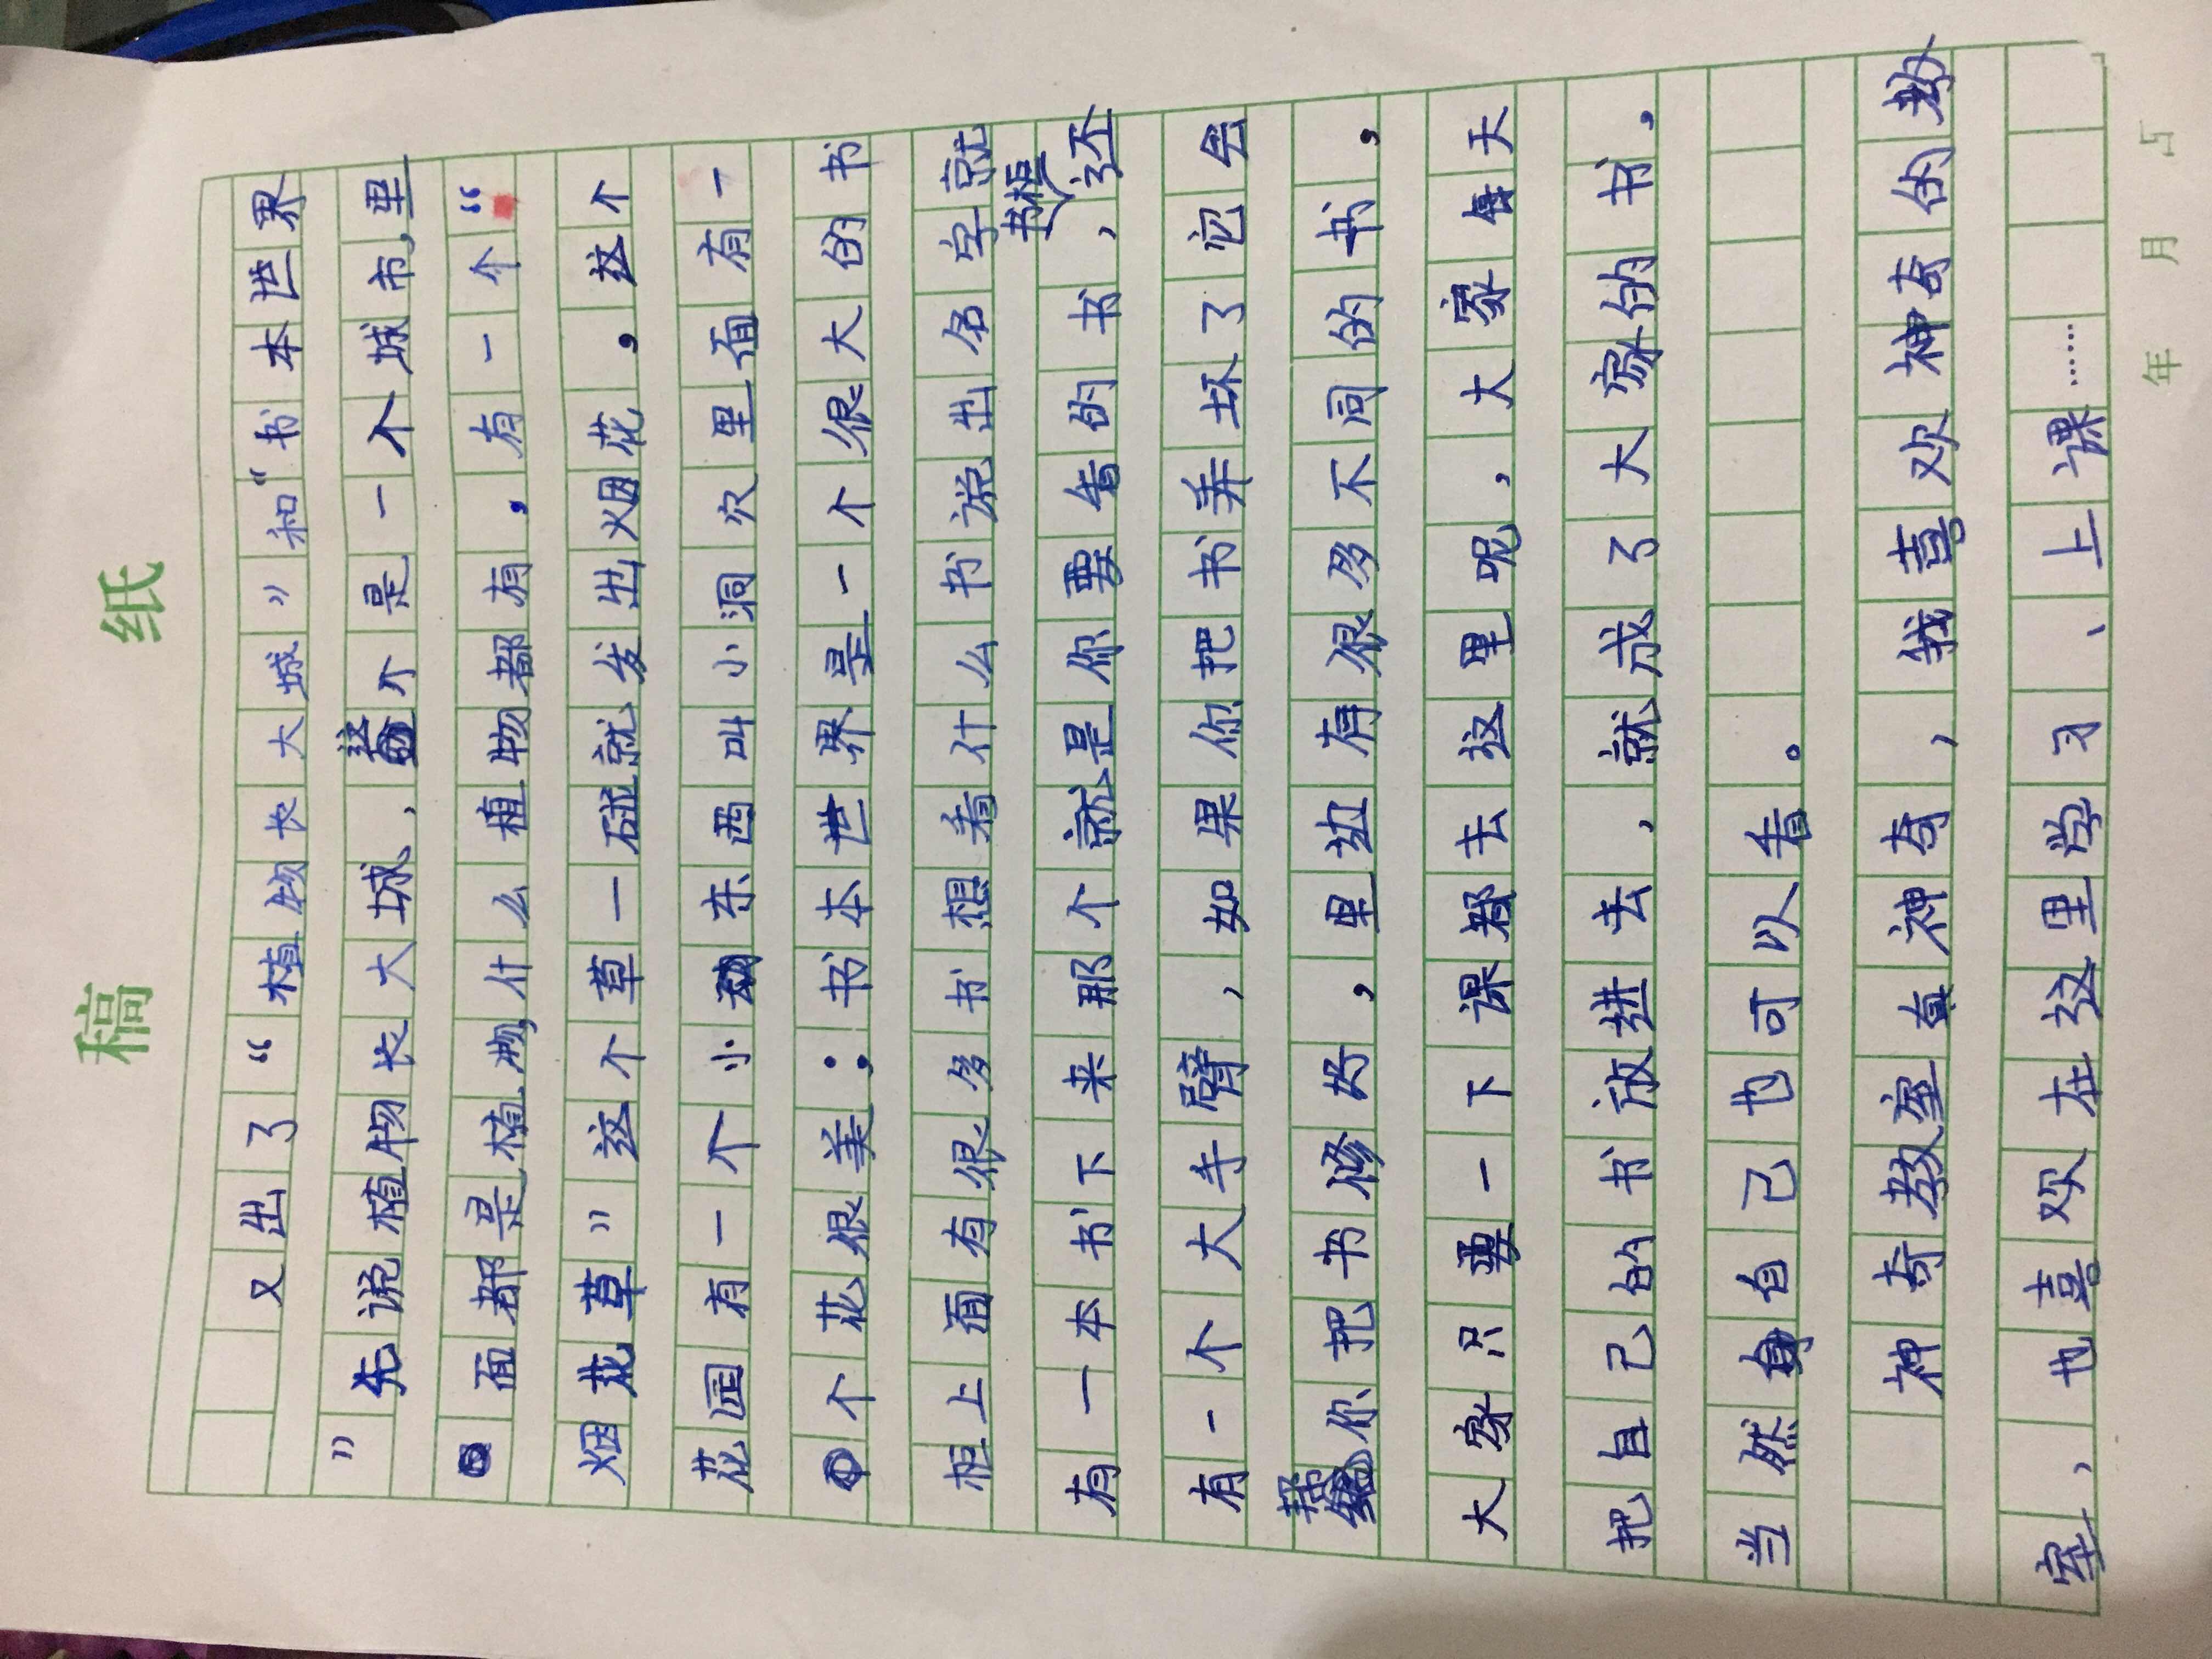 稿 纸
又出了“植物长大城”和“书本世界
”先说植物长大城，这个是一个城市，里
面都是植物，什么植物都有，有一个“
烟花草”这个草一碰就发出烟花，这个
花园有一个小东西叫小洞穴里面有一
个花很美；书本世界是一个很大的书
柜上面有很多书想看什么书说出名字就
有一本书下来那个就是你要看的书，书柜还
有一个大手臂，如果你把书弄坏了它会
帮你把书修好，里边有很多不同的书，
大家只要一下课都去这里呢，大家每天
把自己的书放进去，就成了大家的书，
当然自己也可以看。
神奇教室真神奇，我喜欢神奇的教
室，也喜欢在这里学习、上课……
年 月